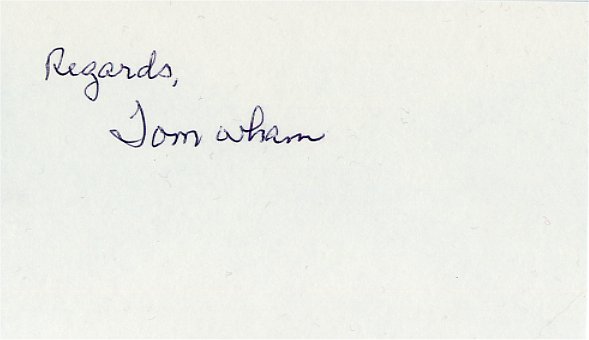 Regards,
Tom Wham